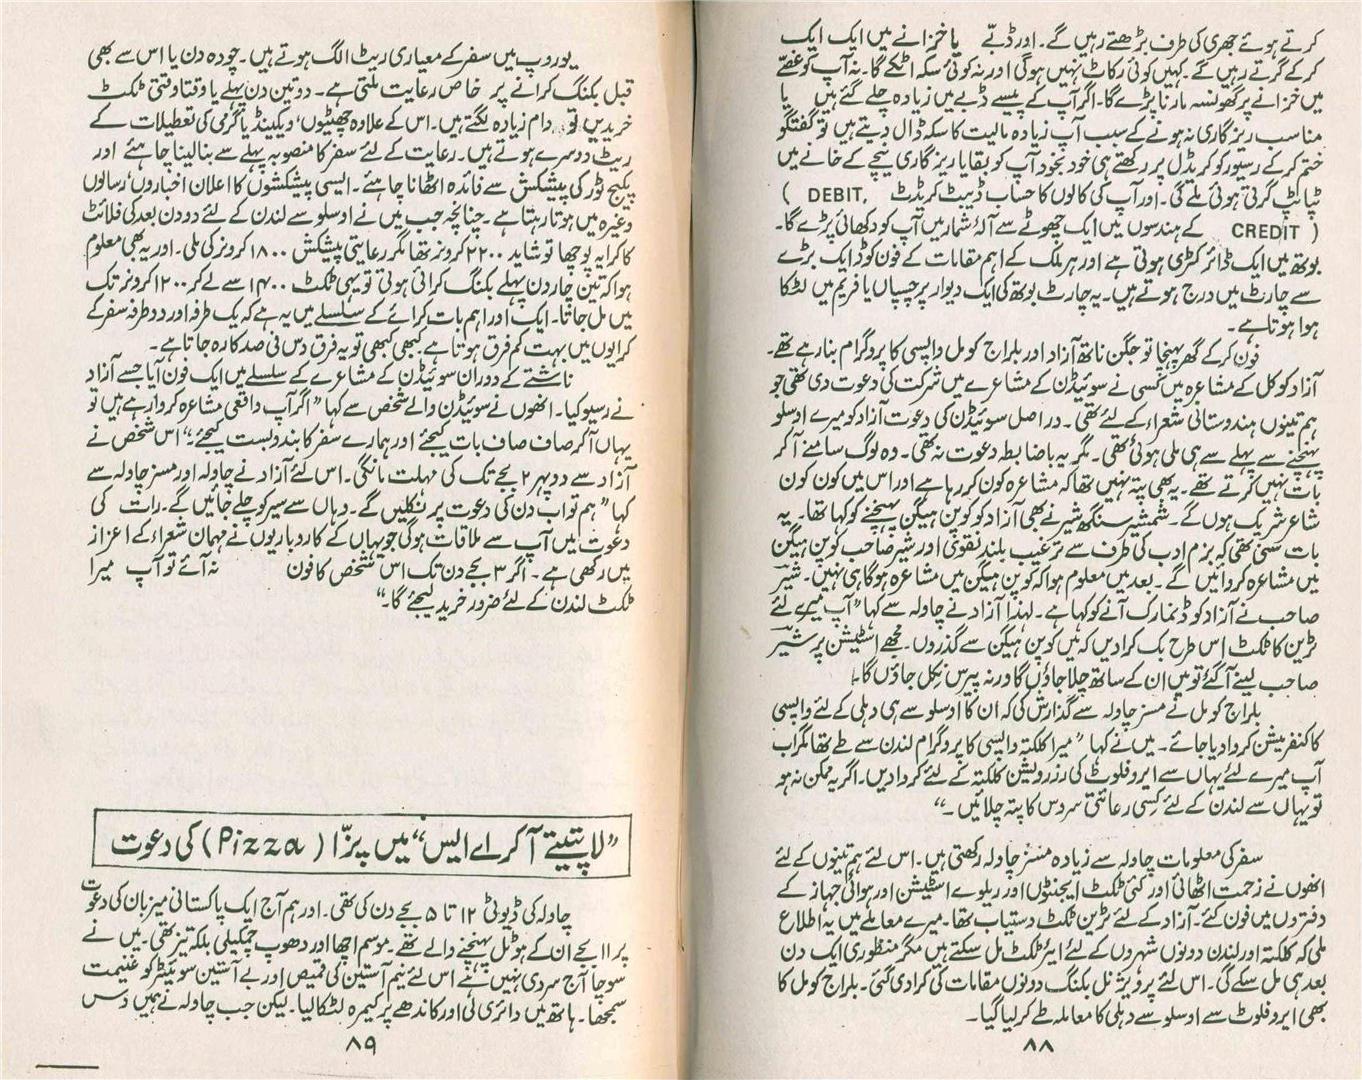 کرتے ہوئے جھری کی طرف بڑھتے رہیں گے۔ اور ڈبّے یا خزانے میں ایک ایک
کر کے گرتے رہیں گے۔ کہیں کوئی رکاٹ نہیں ہوگی اور نہ کوئی سکہ اٹکے گا۔ نہ آپ کو غصّے
میں خزانے پر گھونسہ مارنا پڑے گا۔ اگر آپ کے پیسے ڈبے میں زیادہ چلے گئے ہیں یا
مناسب ریزگاری نہ ہونے کے سبب آپ زیادہ مالیت کا سکہ ڈال دیتے ہیں تو گفتگو
ختم کر کے رسیور کو کریڈل پر رکھتے ہی خود بخود آپ کو بقایا ریزگاری نیچے کے خانے میں
ٹپا ٹپ گرتی ہوئی ملے گی۔ اور آپ کی کالوں کا حساب ڈیبٹ کریڈٹ ( DEBIT,
CREDIT ) کے ہندسوں میں ایک چھوٹے سے آلۂ شمار میں آپ کو دکھائی پڑے گا۔
بوتھ میں ایک ڈائرکٹری ہوتی ہے اور ہر ملک کے اہم مقامات کے فون کوڈ ایک بڑے
سے چارٹ میں درج ہوتے ہیں۔ یہ چارٹ بوتھ کی ایک دیوار پر چسپاں یا فریم میں لٹکا
ہوا ہوتا ہے۔
فون کر کے گھر پہنچا تو جگن ناتھ آزاد اور بلراج کومل واپسی کا پروگرام بنا رہے تھے۔
آزاد کو کل کے مشاعرہ میں کسی نے سوئیڈن کے مشاعرے میں شرکت کی دعوت دی تھی جو
ہم تینوں ہندوستانی شعراء کے لئے تھی۔ در اصل سوئیڈن کی دعوت آزاد کو میرے اوسلو
پہنچنے سے پہلے سے ہی ملی ہوئی تھی۔ مگر یہ باضابطہ دعوت نہ تھی۔ وہ لوگ سامنے آ کر
بات نہیں کرتے تھے۔ یہ بھی پتہ نہیں تھا کہ مشاعرہ کون کر رہا ہے اور اس میں کون کون
شاعر شریک ہوں گے۔ شمشیر سنگھ شیر نے بھی آزاد کو کوپن ہیگن پہنچنے کو کہا تھا۔ یہ
بات سنی تھی کہ بزم ادب کی طرف سے ترغیب بلند نقوی اور شیر صاحب کوپن ہیگن
میں مشاعرہ کروائیں گے۔ بعد میں معلوم ہوا کہ کوپن ہیگن میں مشاعرہ ہوگا ہی نہیں۔ شیر
صاحب نے آزاد کو ڈنمارک آنے کو کہا ہے۔ لہٰذا آزاد نے چاولہ سے کہا "آپ میرے لئے
ٹرین کا ٹکٹ اس طرح بک کرا دیں کہ میں کوپن ہیگن سے گذروں۔ مجھے اسٹیشن پر شیر
صاحب لینے آگئے تو میں ان کے ساتھ چلا جاؤں گا ورنہ پیرس نکل جاؤں گا۔"
بلراج کومل نے مسز چاولہ سے گذارش کی کہ ان کا اوسلو سے ہی دہلی کے لئے واپسی
کا کنفرمیشن کروا دیا جائے۔ میں نے کہا "میرا کلکتہ واپسی کا پروگرام لندن سے طے تھا مگر اب
آپ میرے لئے یہاں سے ایروفلوٹ کی رزرویشن کلکتہ کے لئے کروا دیں۔ اگر یہ ممکن نہ ہو
تو یہاں سے لندن کے لئے کسی رعائتی سروس کا پتہ چلائیں۔"
سفر کی معلومات چاولہ سے زیادہ مسز چاولہ رکھتی ہیں۔ اس لئے ہم تینوں کے لئے
انھوں نے زحمت اٹھائی اور کئی ٹکٹ ایجنٹوں اور ریلوے اسٹیشن اور ہوائی جہاز کے
دفتروں میں فون کئے۔ آزاد کے لئے ٹرین ٹکٹ دستیاب تھا۔ میرے معاملے میں یہ اطلاع
ملی کہ کلکتہ اور لندن دونوں شہروں کے لئے ایئر ٹکٹ مل سکتے ہیں مگر منظوری ایک دن
بعد ہی مل سکے گی۔ اس لئے پرویژنل بکنگ دونوں مقامات کی کرا دی گئی۔ بلراج کومل کا
بھی ایروفلوٹ سے اوسلو سے دہلی کا معاملہ طے کر لیا گیا۔
۸۸
یوروپ میں سفر کے معیاری ریٹ الگ ہوتے ہیں۔ چودہ دن یا اس سے بھی
قبل بکنگ کرانے پر خاص رعایت ملتی ہے۔ دو تین دن پہلے یا وقتاً وقتی ٹکٹ
خریدیں تو دام زیادہ لگتے ہیں۔ اس کے علاوہ چھٹیوں، ویکینڈ یا گرمی کی تعطیلات کے
ریٹ دوسرے ہوتے ہیں۔ رعایت کے لئے سفر کا منصوبہ پہلے سے بنا لینا چاہئے اور
پکیج ٹور کی پیشکش سے فائدہ اٹھانا چاہئے۔ ایسی پیشکشوں کا اعلان اخباروں، رسالوں
وغیرہ میں ہوتا رہتا ہے۔ چنانچہ جب میں نے اوسلو سے لندن کے لئے دو دن بعد کی فلائٹ
کا کرایہ پوچھا تو شاید ۲۲۰۰ کرونر تھا مگر رعایتی پیشکش ۱۸۰۰ کرونر کی ملی۔ اور یہ بھی معلوم
ہوا کہ تین چار دن پہلے بکنگ کرائی ہوتی تو یہی ٹکٹ ۱۴۰۰ سے لے کر ۱۲۰۰ کرونر تک
میں مل جاتا۔ ایک اور اہم بات کرائے کے سلسلے میں یہ ہے کہ یک طرفہ اور دو طرفہ سفر کے
کرایوں میں بہت کم فرق ہوتا ہے، کبھی کبھی تو یہ فرق دس فی صد کا رہ جاتا ہے۔
ناشتے کے دوران سوئیڈن کے مشاعرے کے سلسلے میں ایک فون آیا جسے آزاد
نے رسیو کیا۔ انھوں نے سوئیڈن والے شخص سے کہا "اگر آپ واقعی مشاعرہ کروا رہے ہیں تو
یہاں آکر صاف صاف بات کیجئے اور ہمارے سفر کا بندوبست کیجئے"، اس شخص نے
آزاد سے دوپہر ۲ بجے تک کی مہلت مانگی۔ اس لئے آزاد نے چاولہ اور مسز چاولہ سے
کہا "ہم تو اب دن کی دعوت پر نکلیں گے۔ وہاں سے سیر کو چلے جائیں گے۔ رات کی
دعوت میں آپ سے ملاقات ہوگی جو یہاں کے کاروباریوں نے مہمان شعراء کے اعزاز
میں رکھی ہے۔ اگر ۳ بجے دن تک اس شخص کا فون نہ آئے تو آپ میرا
ٹکٹ لندن کے لئے ضرور خرید لیجئے گا۔"
"لا پتیتے آکر اے ایس" میں پزّا (Pizza) کی دعوت
چاولہ کی ڈیوٹی ۱۲ تا ۵ بجے دن کی تھی۔ اور ہم آج ایک پاکستانی میزبان کی دعوت
پر ۱۱ بجے ان کے ہوٹل پہنچنے والے تھے۔ موسم اچھا اور دھوپ چمکیلی بلکہ تیز تھی۔ میں نے
سوچا آج سردی نہیں ہے اس لئے نیم آستین کی قمیص اور بے آستین سوئیٹر کو غنیمت
سمجھا۔ ہاتھ میں ڈائری لی اور کاندھے پر کیمرہ لٹکا لیا۔ لیکن جب چاولہ نے ہمیں دس
۸۹